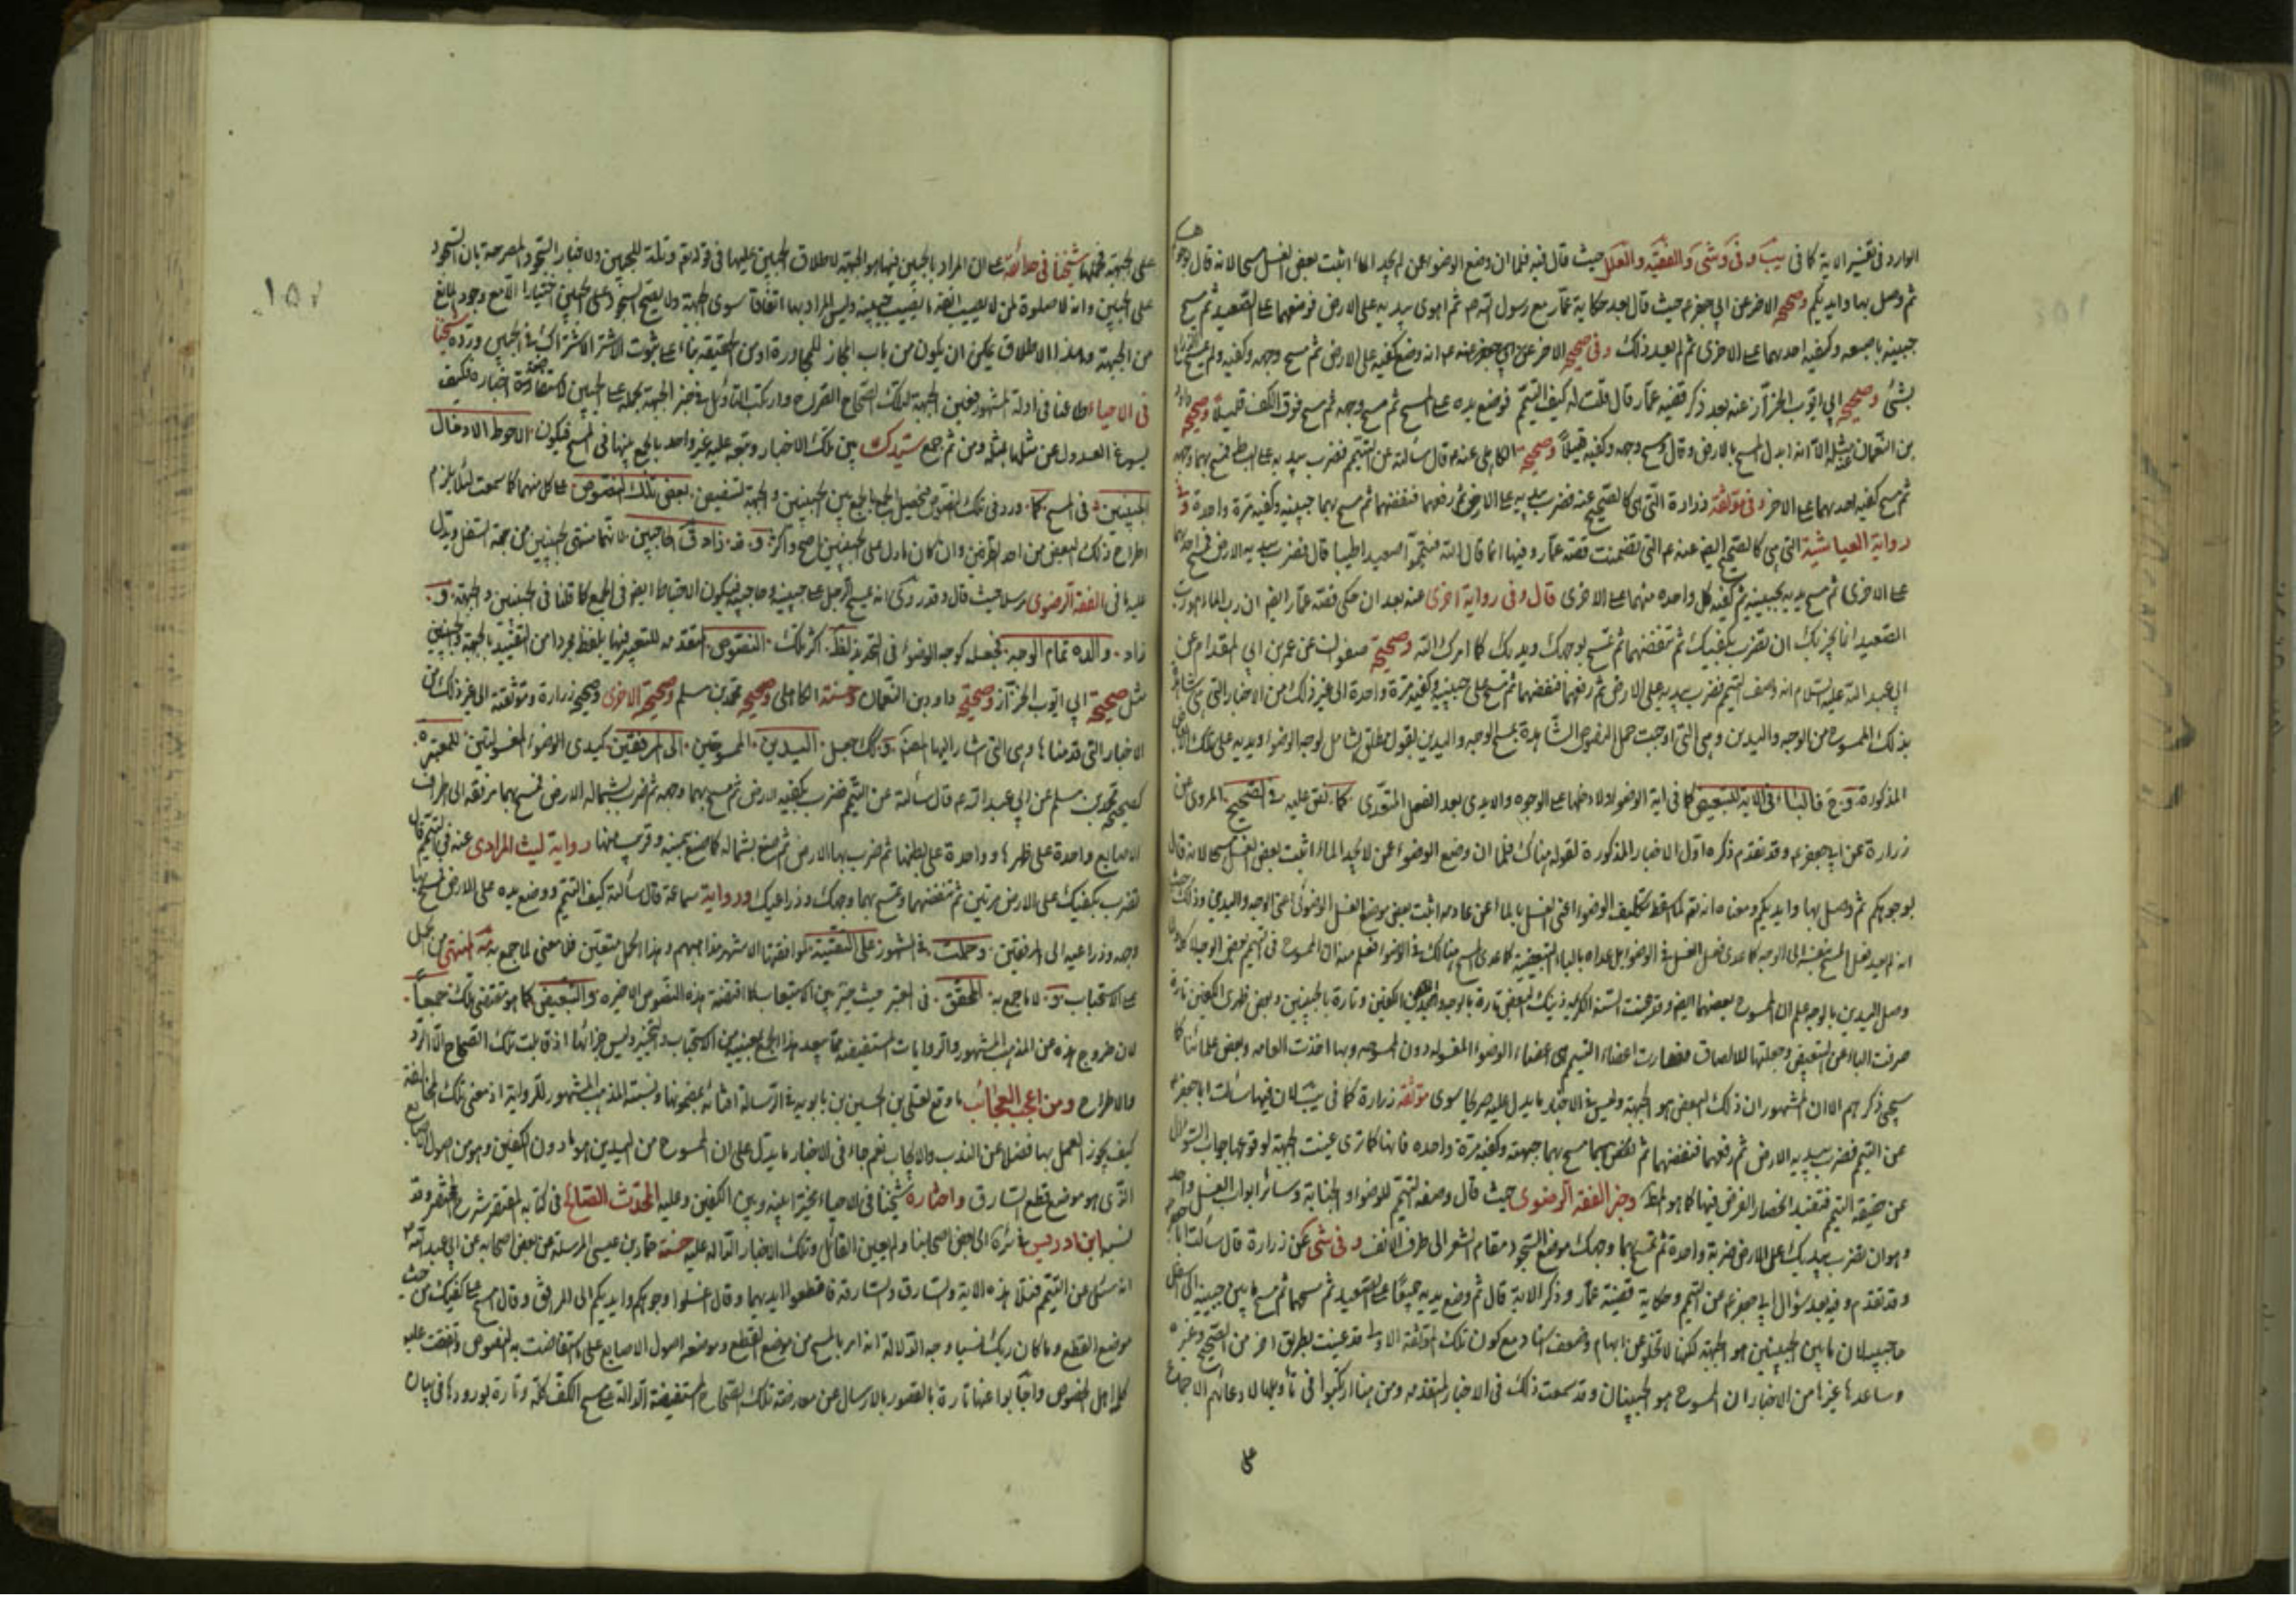 الوارد في تفسير الاية كما في يب و في و شى و الفقيه و العلل حيث قال فيه فلما ان وضع الوضوء عمن لم يجد الماء اثبت بعض الغسل مسحا لانه قال بوجوهكم
ثم وصل بها وايديكم وصحيحه الاخر عن ابي جعفر ع حيث قال بعد حكاية عمار مع رسول الله ص ثم اهوى بيديه على الارض فوضعهما على الصعيد ثم مسح
جبينه باصبعه وكفيه احدهما على الاخرى ثم لم يعد ذلك وفي صحيحه الاخر عن ابي جعفر ع انه وضع كفيه على الارض ثم مسح وجهه وكفيه ولم يمسح الذراعين
بشئ وصحيح ابي ايوب الخزاز عنه بعد ذكر قضيه عمار قال قلت له كيف التيمم فوضع يده على المسح ثم مسح وجهه ثم مسح فوق الكف قليلا وصحيحه داود
بن النعمان مثله الا انه ابدل المسح بالارض وقال فمسح وجهه وكفيه قليلا الكاهلي عنه ع قال سالته عن التيمم فضرب بيديه على البساط فمسح بهما وجهه
ثم مسح كفيه احدهما على الاخر وفي موثقة زرارة التي هي كالصحيح عنه فضرب بيديه على الارض ثم رفعهما فنفضهما ثم مسح بهما جبينيه وكفيه مرة واحدة وفي
رواية العياشية التي هي كالصحيح ايض عنه ع التي تضمنت قصة عمار وفيها انما قال الله فتيمموا صعيدا طيبا قال فضرب بيديه الارض فمسح احدهما
على الاخرى ثم مسح يديه بجبينيه ثم كفيه كل واحده منهما على الاخرى قال وفي رواية اخرى عنه بعد ان حكى قصة عمار ايض ان رب الماء هو رب
الصعيد انما يجزيك ان تضرب بكفيك ثم تنفضهما ثم تمسح بوجهك ويديك كما امرك الله وصحيحة صفوان عن عمر بن ابي المقدام عن
ابي عبد الله عليه السلام انه وصف التيمم فضرب بيديه على الارض ثم رفعهما فنفضهما ثم مسح على جبينيه وكفيه مرة واحدة الى غير ذلك من الاخبار التي هي شاهدة
بذلك الممسوح من الوجه واليدين وهي التي اوجبت حمل النصوص الشاهدة بمسح الوجه واليدين بقول مطلق الشامل لوجه الوضوء ويديه على تلك
المذكورة وح فالباء في الاية للتبعيض كما في اية الوضوء لادخالها على الوجوه والايدي بعد الفعل المتعدى كما نص عليه في الصحيح المروي عن
زرارة عن ابي جعفر ع وقد تقدم ذكره اول الاخبار المذكورة لقوله هناك فلما ان وضع الوضوء عمن لا يجد الماء اثبت بعض الغسل مسحا لانه قال
بوجوهكم ثم وصل بها وايديكم ومعناه انه لما سقط تكليف الوضوء اعنى الغسل بالماء عن عادمه اثبت بعض موضع الغسل الوضوئي اعنى الوجه واليدين وذلك حيث
وصل اليدين بالوجه علم ان الممسوح بعضهما ايض وقد عينت السنة الكريمه ذينك البعض تارة بالوجه الكفين وتارة بالجبينين وبعض ظهري الكفين تارة
صرفت الباء عن التبعيض وجعلتها للالصاق فصارت اعضاء التيمم هي اعضاء الوضوء المغسوله دون الممسوحه وبها اخذت العامه وبعض علمائنا كما
سيجئ ذكرهم الا ان المشهور ان ذلك البعض هو الجبهة وليس في الاخبار ما يدل عليه صريحا سوى موثقة زرارة كما في يب لان فيها سالت ابا جعفر ع
عن التيمم فضرب بيديه الارض ثم رفعهما فنفضهما ثم مسح بهما جبهته وكفيه مرة واحده فانها كما ترى عينت الجبهة لوقوعها جواب السؤال
عن حقيقة التيمم فتفيد انحصار الفرض فيها كما هو لفظ وخبر الفقه الرضوى حيث قال وصفه التيمم للوضوء والجنابة وسائر ابواب الغسل واحد
وهو ان تضرب بيديك على الارض ضربة واحدة ثم تمسح بهما وجهك موضع السجود من مقام الشعر الى طرف الانف وفي شى عن زرارة قال سالت ابا جعفر
وقد تقدم وفيه بعد سؤال ابي جعفر ع من التيمم وحكاية قضية عمار وذكر الاية قال ثم وضع يديه جميعا على الصعيد ثم مسحهما ثم مسح ما بين جبينيه الى اسفل
حاجبيه لان ما بين الجبينين هو الجبهة لكنها لا تخلو عن ابهام وضعف اسناد مع كون تلك الموثقة الاولى قد عينت بطريق اخر من الصحيح وغيره
وساعدها غيرها من الاخبار ان الممسوح هو الجبينان وقد سمعت ذلك في الاخبار المتقدمه ومن هنا ارتكبوا في تأويلها لادعائهم الاجماع
على
١٥٧
على الجبهة فحملها شيخنا في حدائقه على ان المراد بالجبين فيها هو الجبهة لاطلاق الجبين عليها في قوله تع وتله للجبين ولاخبار السجود المصرحة بان السجود
على الجبين وانه لا صلوة لمن لا يصيب انفه ما يصيب جبينه وليس المراد بها اتفاقا سوى الجبهة ولا يصح السجود على الجبين اختيارا الا مع وجود المانع
من الجبهة وهذا الاطلاق يمكن ان يكون من باب المجاز للمجاورة او من الحقيقة بناء على ثبوت الاشتراك في الجبين ورده شيخنا
في الاحياء طاعنا في ادلة المشهور فعين الجبهة لتلك الصحاح الصراح وارتكب التأويل في خبر الجبهة بحمله على الجبين اخباره فكيف
يسوغ العدول عن مثلها بمثله ومن ثم جمع سيدك بين تلك الاخبار وتبعه عليه غير واحد بالجمع بينها في المسح فيكون الاحوط الادخال
الجبينين في المسح كما ورد في تلك النصوص الجمع بين الجبينين والجبهة لتنصيص بعض تلك النصوص على كل منهما كما سمعت لئلا يلزم
اطراح ذلك البعض من احد الطرفين وان كان ما دل على الجبينين اصح واكثر وقد زاد ق الحاجبين لانهما منتهى الجبينين من جهة السفل ويدل
عليه ما في الفقه الرضوى مرسلا حيث قال وقد روى انه يمسح الرجل على جبينيه وحاجبيه فيكون الاحتياط ايض في الجمع كما قلنا في الجبينين والجبهة و
زاد والده تمام الوجه فجعله كوجه الوضوء في التحديد لظ اكثر تلك النصوص المتقدمه للتعبير فيها بلفظ مجردا من التقييد بالجبهة والجبين
مثل صحيح ابي ايوب الخزاز وصحيحة داود بن النعمان وحسنة الكاهلي وصحيح محمد بن مسلم وصحيحة الاخرى وصحيح زرارة وموثقته الى غير ذلك من
الاخبار التي قدمناها وهي التي اشار اليها المص وكك جعل اليدين الممسوحتين الى المرفقين كيدى الوضوء المغسولتين للمعتبره
كصحيح محمد بن مسلم عن ابي عبد الله ع قال سألته عن التيمم فضرب بكفيه الارض ثم مسح بهما وجهه ثم ضرب بشماله الارض فمسح بها مرفقه الى اطراف
الاصابع واحدة على ظهرها وواحدة على بطنها ثم ضرب بيمينه الارض ثم صنع بشماله كما صنع بيمينه وقريب منها رواية ليث المرادى عنه في التيمم قال
تضرب بكفيك على الارض مرتين ثم تنفضهما وتمسح بهما وجهك وذراعيك ورواية سماعة قال سألته كيف التيمم فوضع يده على الارض فمسح بها
وجهه وذراعيه الى المرفقين وحملت في المشهور على التقية لموافقتها لاشهر مذاهبهم وهذا الحمل متعين فلا معنى لما جمع به في المنتهى من الحمل
على الاستحباب ولا ما جمع به المحقق في المعتبر حيث خير بين الاستيعاب كما اقتضته هذه النصوص الاخيره والتبعيض كما هو مقتضى تلك جميعا
لان خروج هذه عن المذهب المشهور والروايات المستفيضه مما يبعد هذا الجمع بقسميه من الاستحباب والتخيير وليس جزائها اذ قابلت تلك الصحاح الا الرد
والاطراح ومن اعجب العجائب ما وقع لعلي بن الحسين بن بابويه في الرسالة افتائه بمضمونها ونسبته المذهب المشهور للرواية اذ معنى تلك المخالفة
كيف يجوز العمل بها فضلا عن الندب والايجاب نعم جاء في الاخبار ما يدل على ان الممسوح من اليدين هو ما دون الكفين وهو من اصول الاصابع
الذي هو موضع قطع السارق واختاره شيخنا في الاحياء مخيرا بينه وبين الكفين وعليه المحدث الصالح في كتابه المقتصر شرح المختصر وقد
نسبه ابن ادريس في سرائره الى بعض اصحابنا ولم يعين القائل وتلك الاخبار الدالة عليه حسنة حماد بن عيسى المرسلة عن بعض اصحابه عن ابي عبد الله ع
انه سئل عن التيمم فتلا هذه الاية والسارق والسارقة فاقطعوا ايديهما وقال اغسلوا وجوهكم وايديكم الى المرافق وقال امسح على كفيك من حيث
موضع القطع وما كان ربك نسيا وجه الدلالة انه امر بالمسح من موضع القطع وموضعه اصول الاصابع على ما استفاضت به النصوص واتفقت عليه
كلمة اهل الخصوص واجابوا عنها تارة بالقصور بالارسال عن معارضة تلك الصحاح المستفيضة الدالة على مسح الكف كله وتارة بورودها في بيان